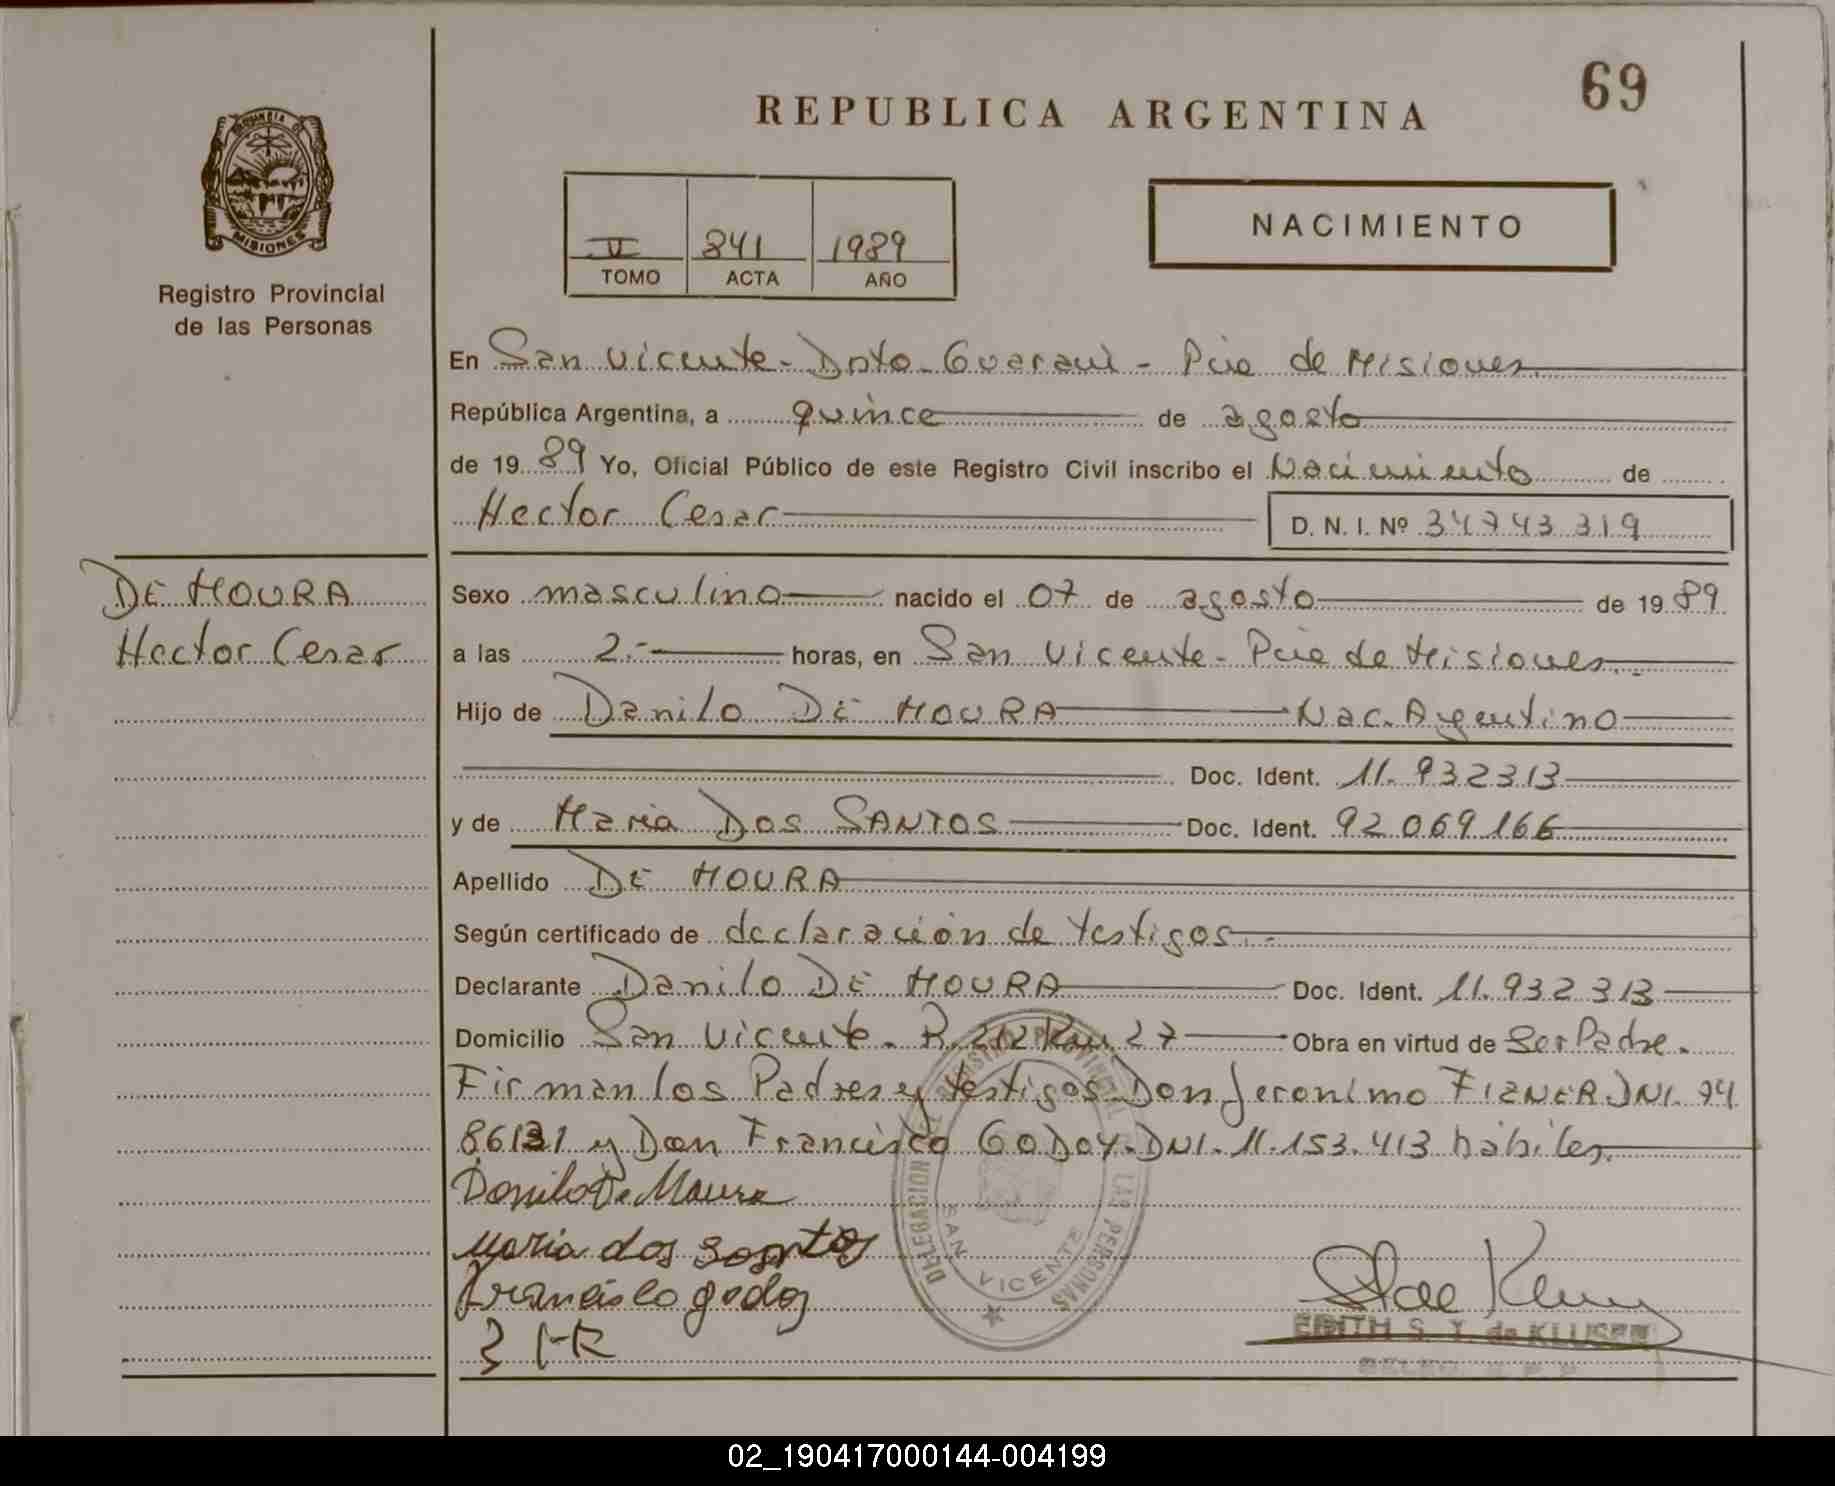 69
REPUBLICA ARGENTINA
PROVINCIA DE
MISIONES
Registro Provincial
de las Personas
II 841 1989
TOMO ACTA AÑO
NACIMIENTO
En San Vicente - Dpto. Guaraní - Pcia de Misiones
República Argentina, a quince de agosto
de 1989 Yo, Oficial Público de este Registro Civil inscribo el Nacimiento de
Hector Cesar D. N. I. Nº 34743319
DE MOURA
Hector Cesar
Sexo masculino nacido el 07 de agosto de 1989
a las 2.- horas, en San Vicente - Pcia de Misiones.-
Hijo de Danilo DE MOURA Nac. Argentino
Doc. Ident. 11.932313
y de Maria DOS SANTOS Doc. Ident. 92069166
Apellido DE MOURA
Según certificado de declaración de testigos.-
Declarante Danilo DE MOURA Doc. Ident. 11.932313
Domicilio San Vicente - R. 212 Km 27 Obra en virtud de Ser Padre.
Firman los Padres y testigos Don Jeronimo DNI.
y Don Francisco GODOY. DNI. 11.153.413 hábiles.
Danilo De Moura
Maria dos Santos
Francisco godoy
DELEGACION DEL REGISTRO PROVINCIAL DE LAS PERSONAS
SAN VICENTE
EDITH S. T. de KLUSER
02_190417000144-004199